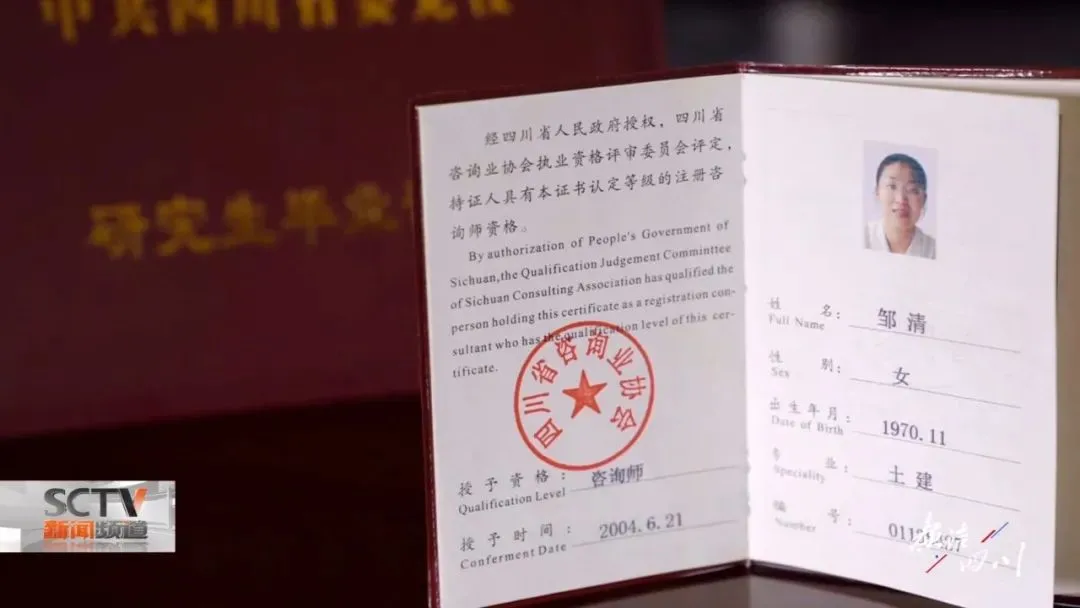 中共四川省委党校
研究生毕业
经四川省人民政府授权，四川省
咨询业协会执业资格评审委员会评定，
持证人具有本证书认定等级的注册咨
询师资格。
By authorization of People's Government of
Sichuan,the Qualification Judgement Committee
of Sichuan Consulting Association has qualified the
person holding this certificate as a registration con-
sultant who has the qualification level of this cer-
tificate.
四川省咨询业协会
授予资格：咨询师
Qualification Level
授予时间：2004.6.21
Conferment Date
姓 名：邹清
Full Name
性 别：女
Sex
出生年月：1970.11
Date of Birth
专 业：土建
Speciality
编 号：
Number
SCTV
新闻频道
四川